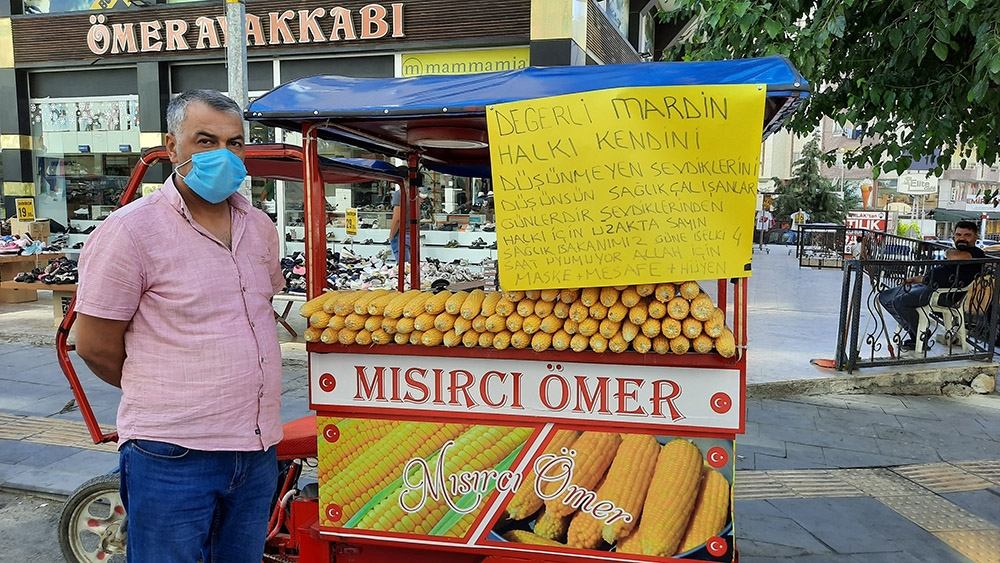 ÖMER AYAKKABI
m mammamia
DEĞERLİ MARDİN
HALKI KENDİNİ
DÜŞÜNMEYEN SEVDİKLERİNİ
DÜŞÜNSÜN SAĞLIK ÇALIŞANLAR
GÜNLERDİR SEVDİKLERİNDEN
HALKI İÇİN UZAKTA SAYIN
SAĞLIK BAKANIMIZ GÜNE BELKİ 4
SAAT UYUMUYOR ALLAH İÇİN
MASKE + MESAFE + HÜYEN
19
Elite
MISIRCI ÖMER
Mısırcı Ömer